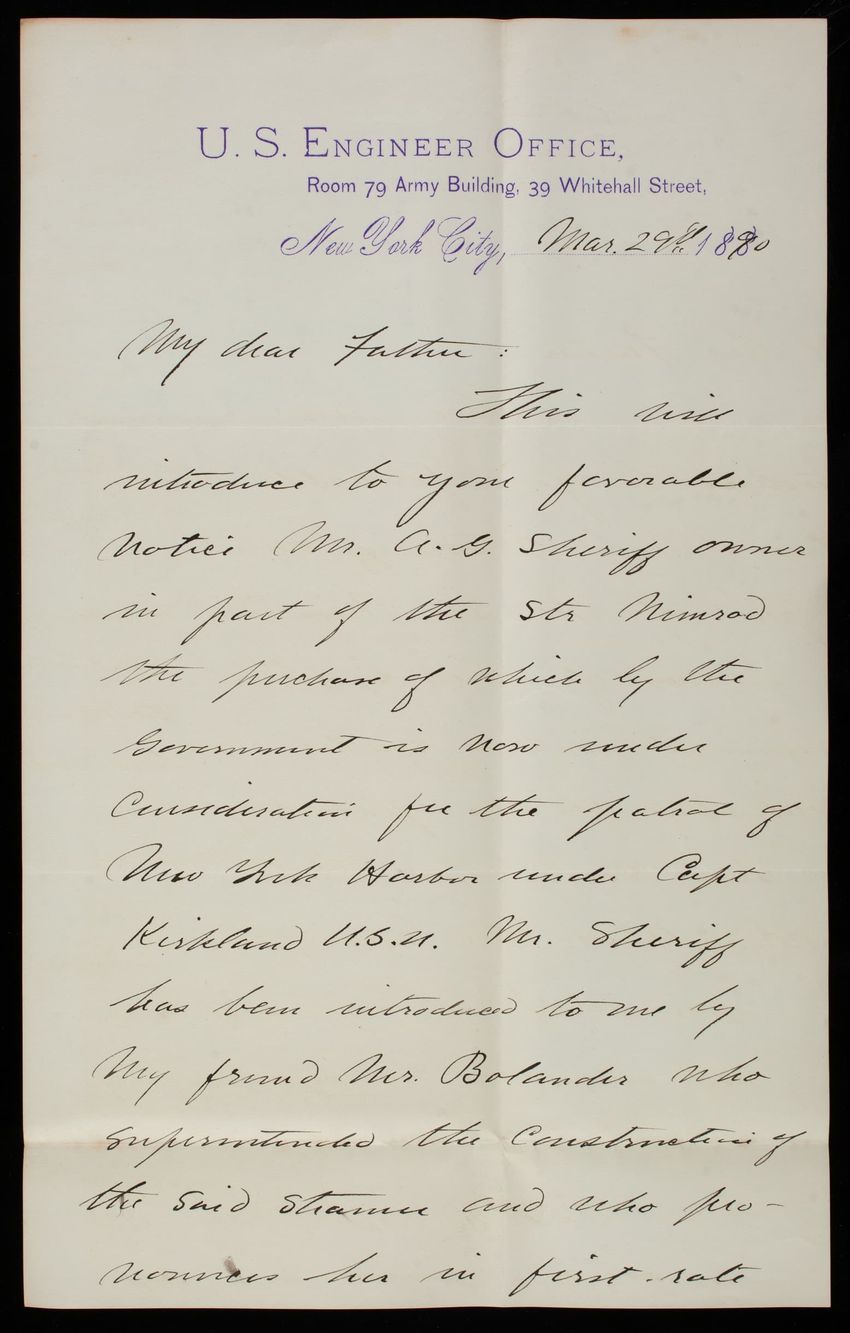 U. S. ENGINEER OFFICE,
Room 79 Army Building, 39 Whitehall Street,
New York City, Mar. 29th 1890
My dear Father:
This will
introduce to your favorable
notice Mr. A. G. Sheriff owner
in part of the Str Nimrod
the purchase of which by the
Government is now under
Consideration for the patrol of
New York Harbor under Capt
Kirkland U.S.N. Mr. Sheriff
has been introduced to me by
My friend Mr. Bolander who
superintended the Construction of
the said Steamer and who pro-
nounces her in first-rate